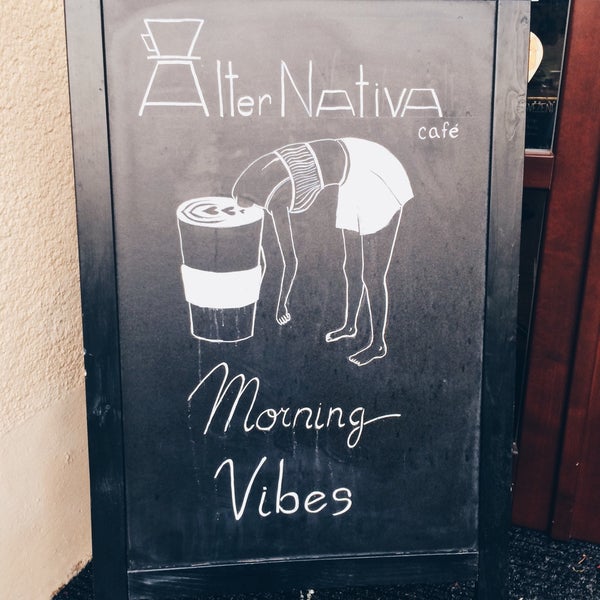 AlterNativa
café
Morning
Vibes